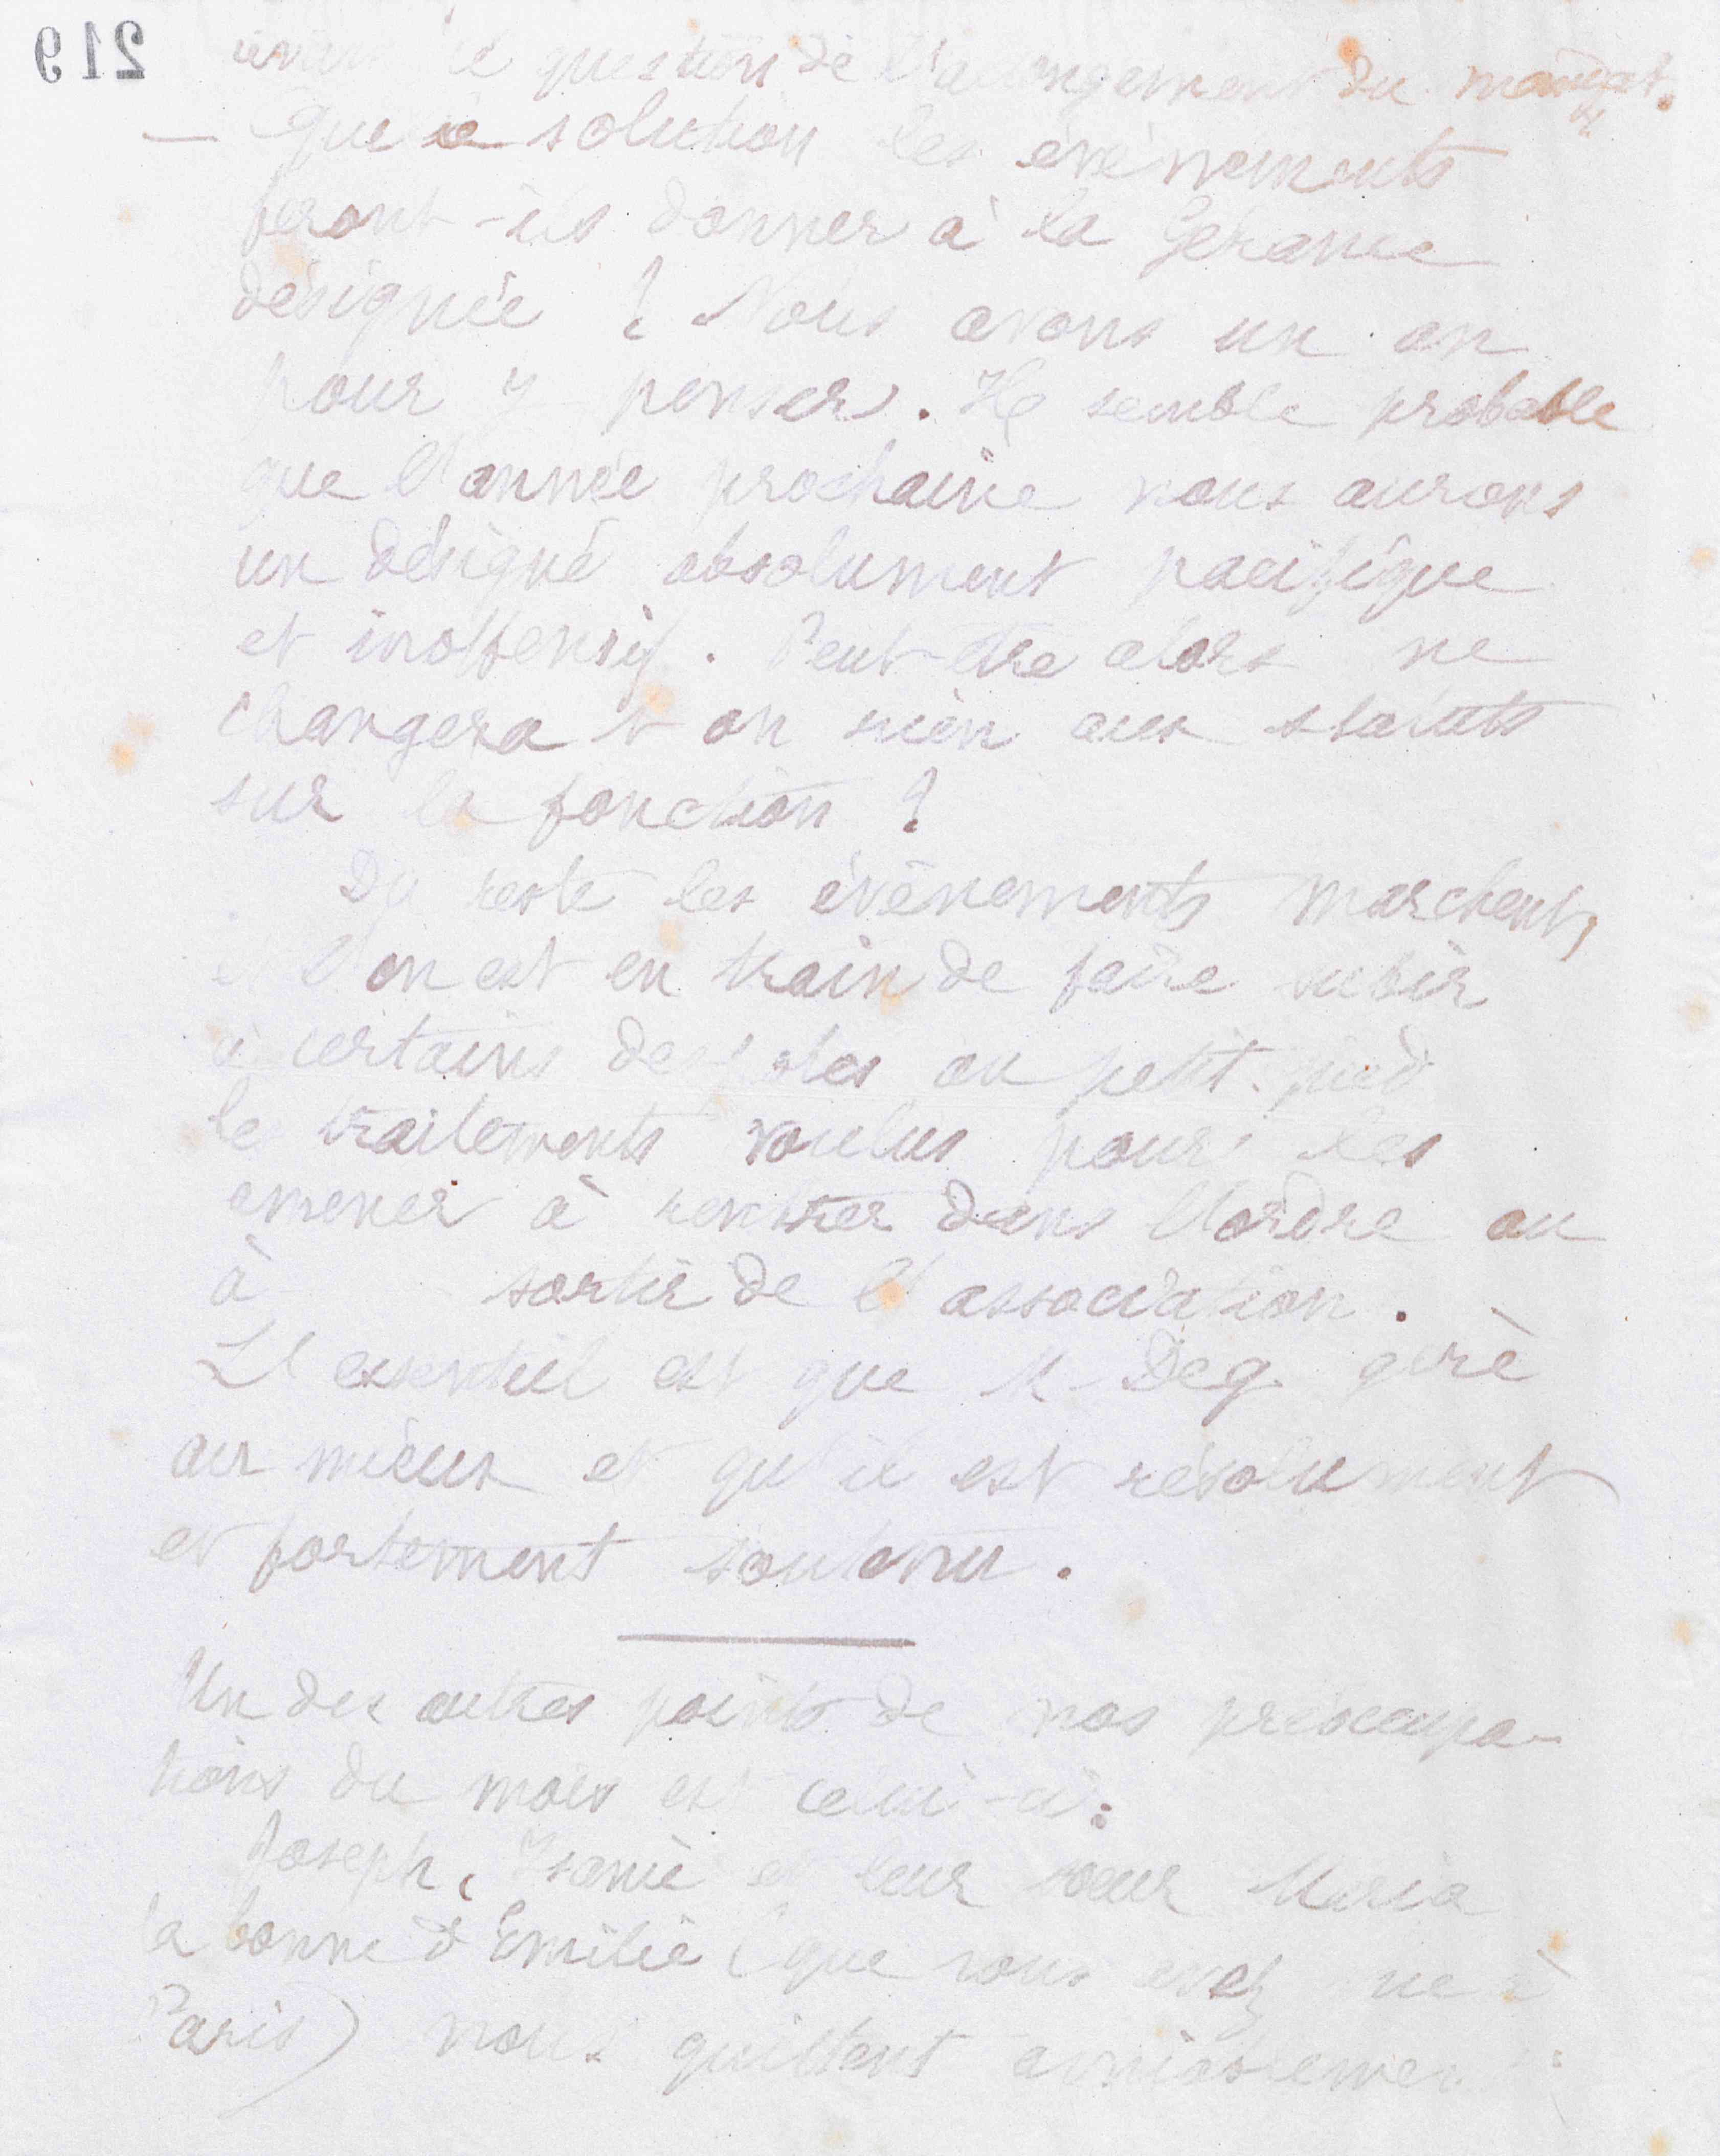 219
question de l'a ongement du mandat.
— Quelle solution les évènements
feront-ils donner à la Gérance
désignée ? Nous avons un an
pour y penser. Il semble probable
que l'année prochaine nous aurons
un désigné absolument pacifique
et inoffensif. Peut-être alors ne
changera t on rien aux statuts
sur la fonction ?
Du reste les évènements marchent,
et l'on est en train de faire subir
à certains despotes au petit pied
les traitements voulus pour les
amener à rentrer dans l'ordre ou
à sortir de l'association.
L'essentiel est que M. Deq. gère
au mieux et qu'il est résolument
et fortement soutenu.
Un des autres points de nos préoccupa-
tions du mois est celui-ci:
Joseph, et leur sœur Maria
la bonne d'Emilie (que vous avez vue à
Paris) nous quittent